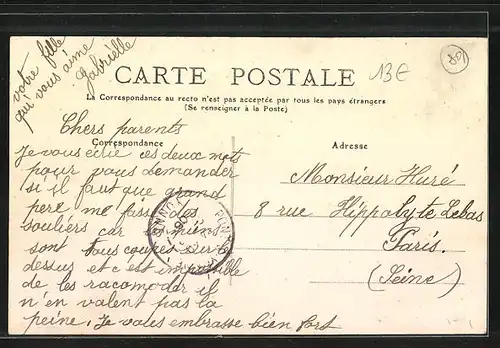 votre fille
qui vous aime
Gabrielle
13€
801
CARTE POSTALE
La Correspondance au recto n'est pas acceptée par tous les pays étrangers
(Se renseigner à la Poste)
Correspondance
Chers parents
Je vous écrie ces deux mots
pour vous demander
si il faut que grand
pere me fisse des
souliers car les miens
sont tous coupés sur le
dessus et c'est impossible
de les racomoder il
n'en valent pas la
peine. Je vous embrasse bien fort
Adresse
Monsieur Huré
8 rue Hippolyte Lebas
Paris.
(Seine)